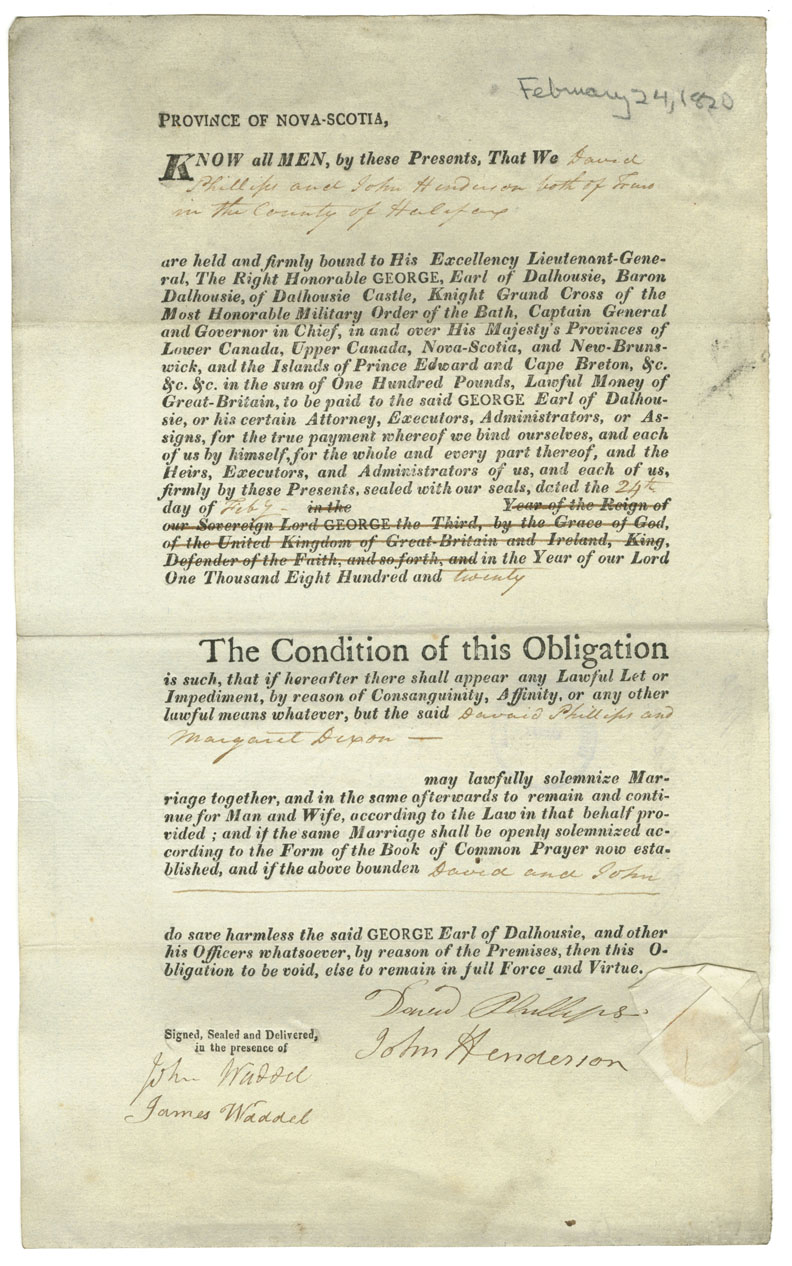 February 24, 1820
PROVINCE OF NOVA-SCOTIA,
KNOW all MEN, by these Presents, That We David
Phillips and John Henderson both of Truro
in the County of Halifax
are held and firmly bound to His Excellency Lieutenant-Gene-
ral, The Right Honorable GEORGE, Earl of Dalhousie, Baron
Dalhousie, of Dalhousie Castle, Knight Grand Cross of the
Most Honorable Military Order of the Bath, Captain General
and Governor in Chief, in and over His Majesty's Provinces of
Lower Canada, Upper Canada, Nova-Scotia, and New-Bruns-
wick, and the Islands of Prince Edward and Cape Breton, &c.
&c. &c. in the sum of One Hundred Pounds, Lawful Money of
Great-Britain, to be paid to the said GEORGE Earl of Dalhou-
sie, or his certain Attorney, Executors, Administrators, or As-
signs, for the true payment whereof we bind ourselves, and each
of us by himself, for the whole and every part thereof, and the
Heirs, Executors, and Administrators of us, and each of us,
firmly by these Presents, sealed with our seals, dated the 24th
day of Feby - in the Year of the Reign of
our Sovereign Lord GEORGE the Third, by the Grace of God,
of the United Kingdom of Great-Britain and Ireland, King,
Defender of the Faith, and so forth, and in the Year of our Lord
One Thousand Eight Hundred and twenty
The Condition of this Obligation
is such, that if hereafter there shall appear any Lawful Let or
Impediment, by reason of Consanguinity, Affinity, or any other
lawful means whatever, but the said Davaid Phillips and
Margaret Dixon —
may lawfully solemnize Mar-
riage together, and in the same afterwards to remain and conti-
nue for Man and Wife, according to the Law in that behalf pro-
vided; and if the same Marriage shall be openly solemnized ac-
cording to the Form of the Book of Common Prayer now esta-
blished, and if the above bounden David and John
do save harmless the said GEORGE Earl of Dalhousie, and other
his Officers whatsoever, by reason of the Premises, then this O-
bligation to be void, else to remain in full Force and Virtue.
David Phillips
John Henderson
Signed, Sealed and Delivered,
in the presence of
John Waddel
James Waddel